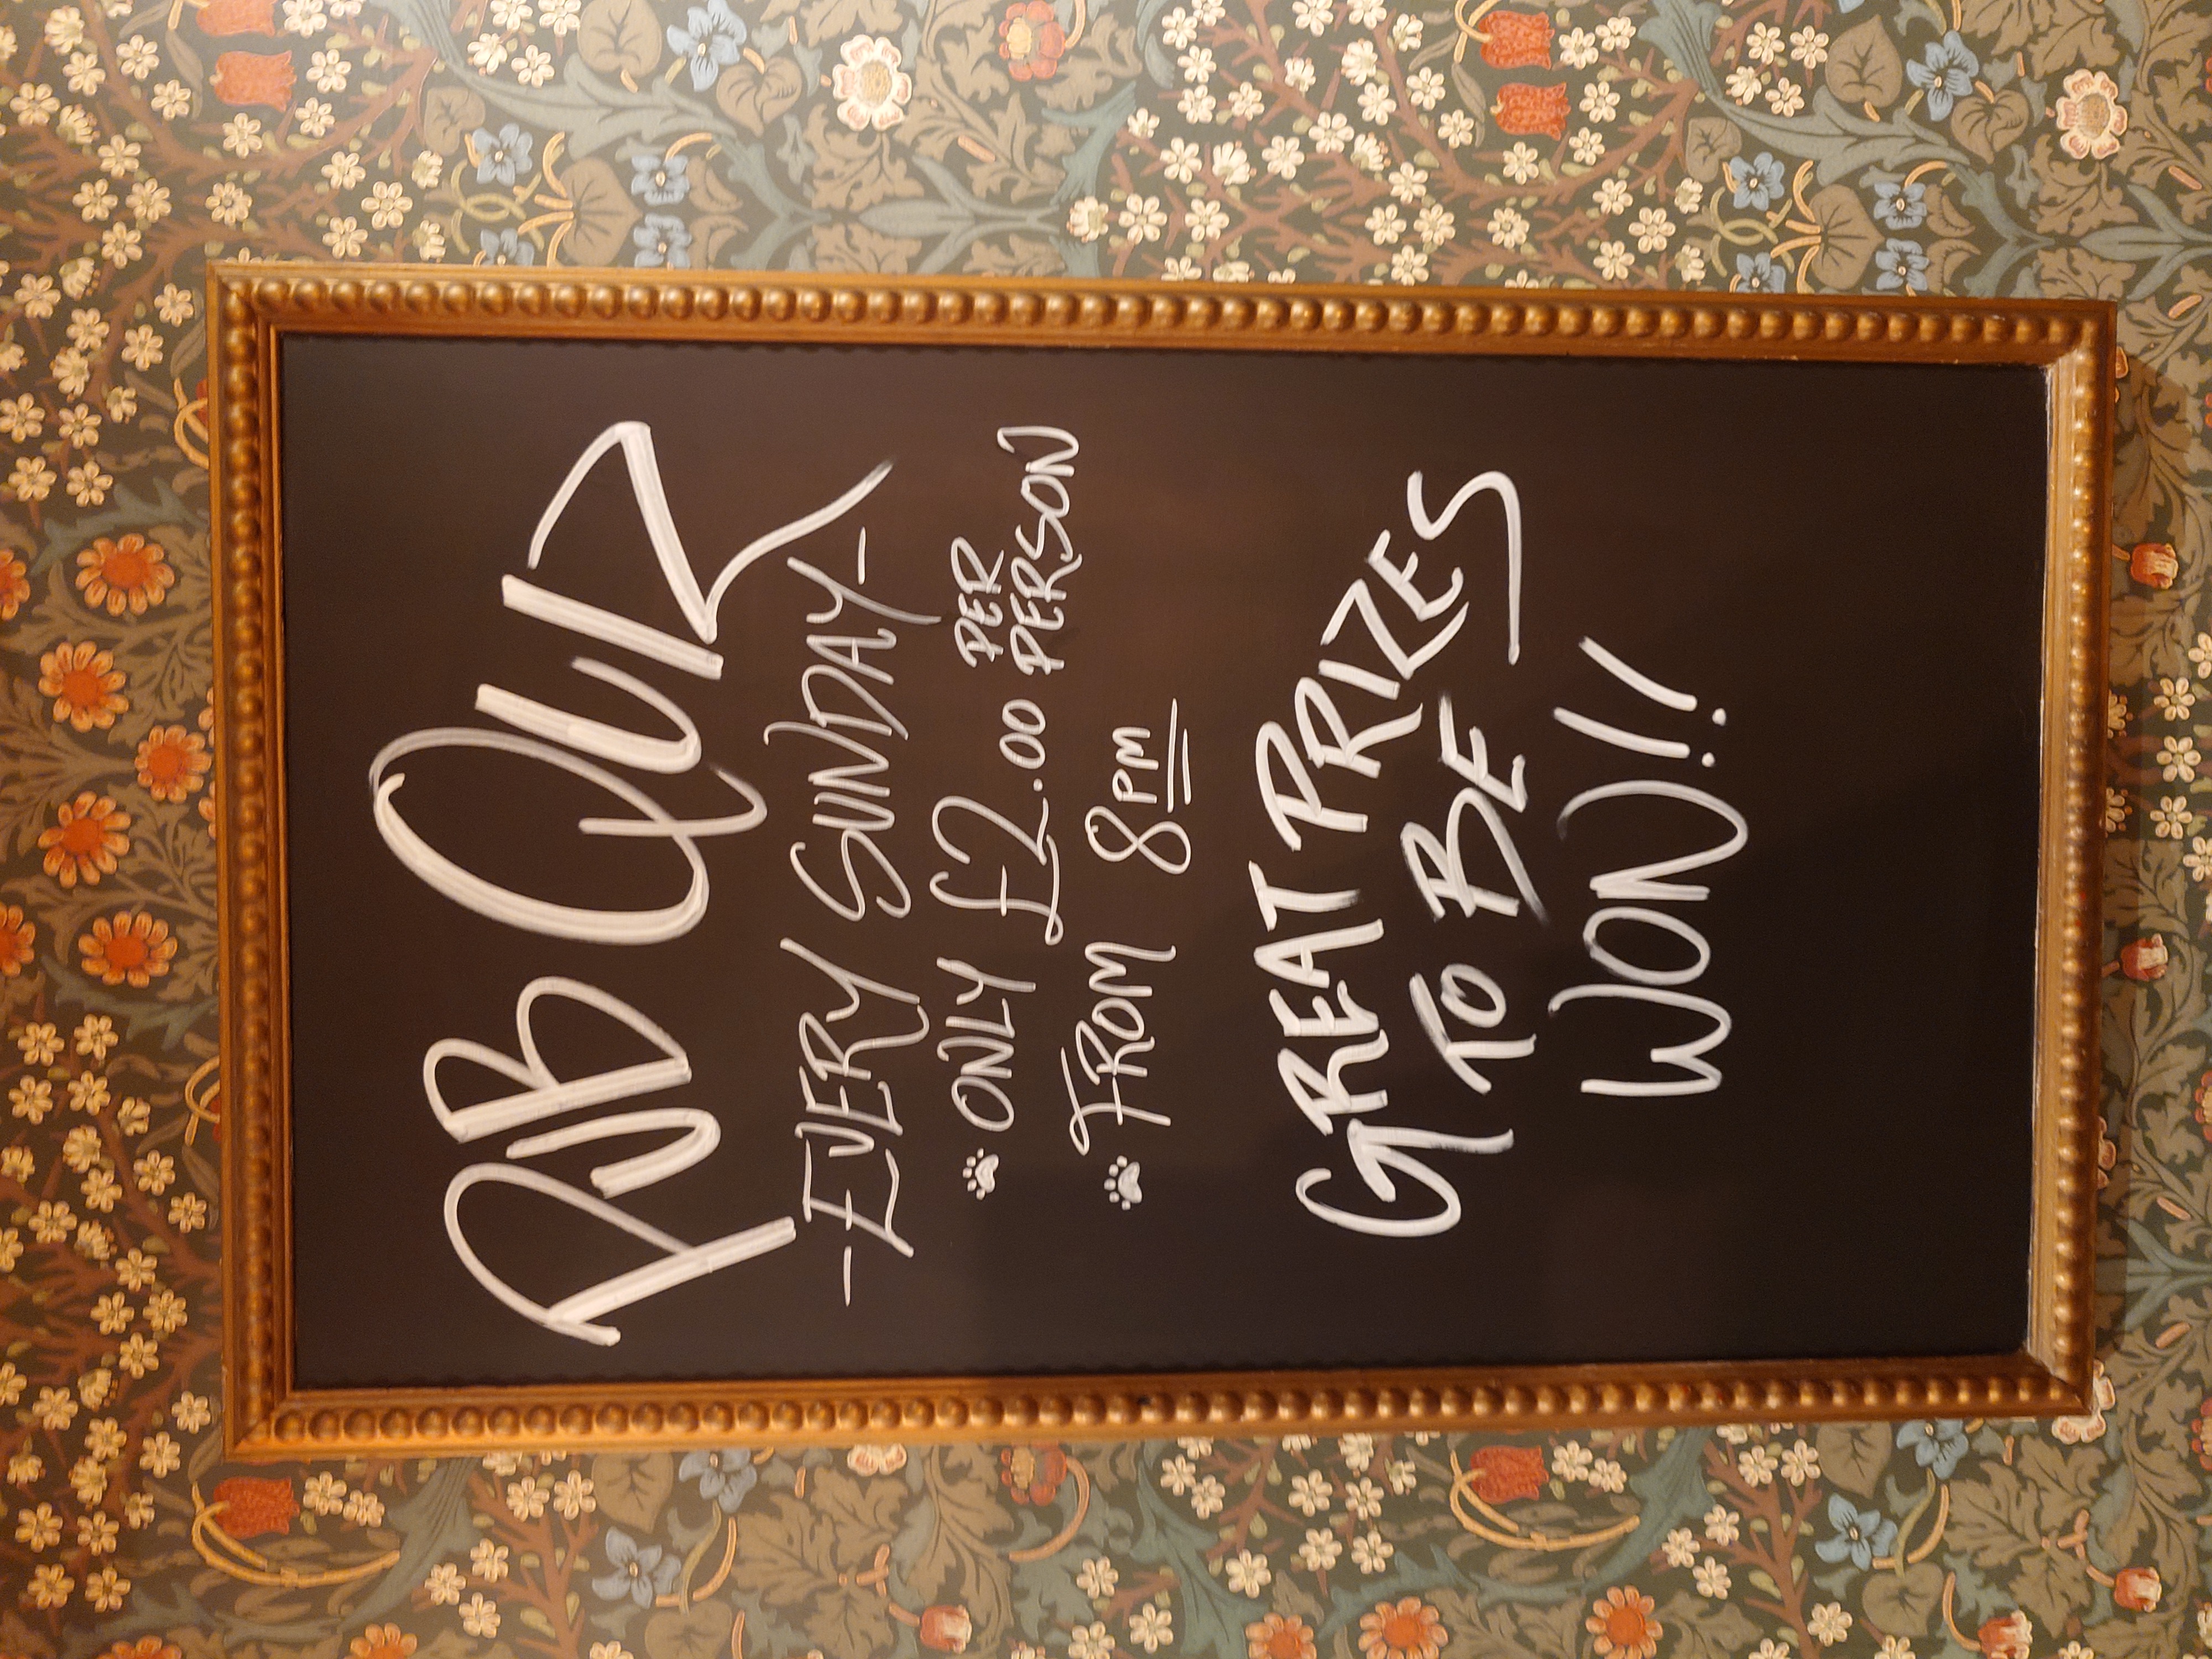 PUB QUIZ
-EVERY SUNDAY-
ONLY £2.00 PER PERSON
FROM 8PM
GREAT PRIZES
TO BE
WON!!